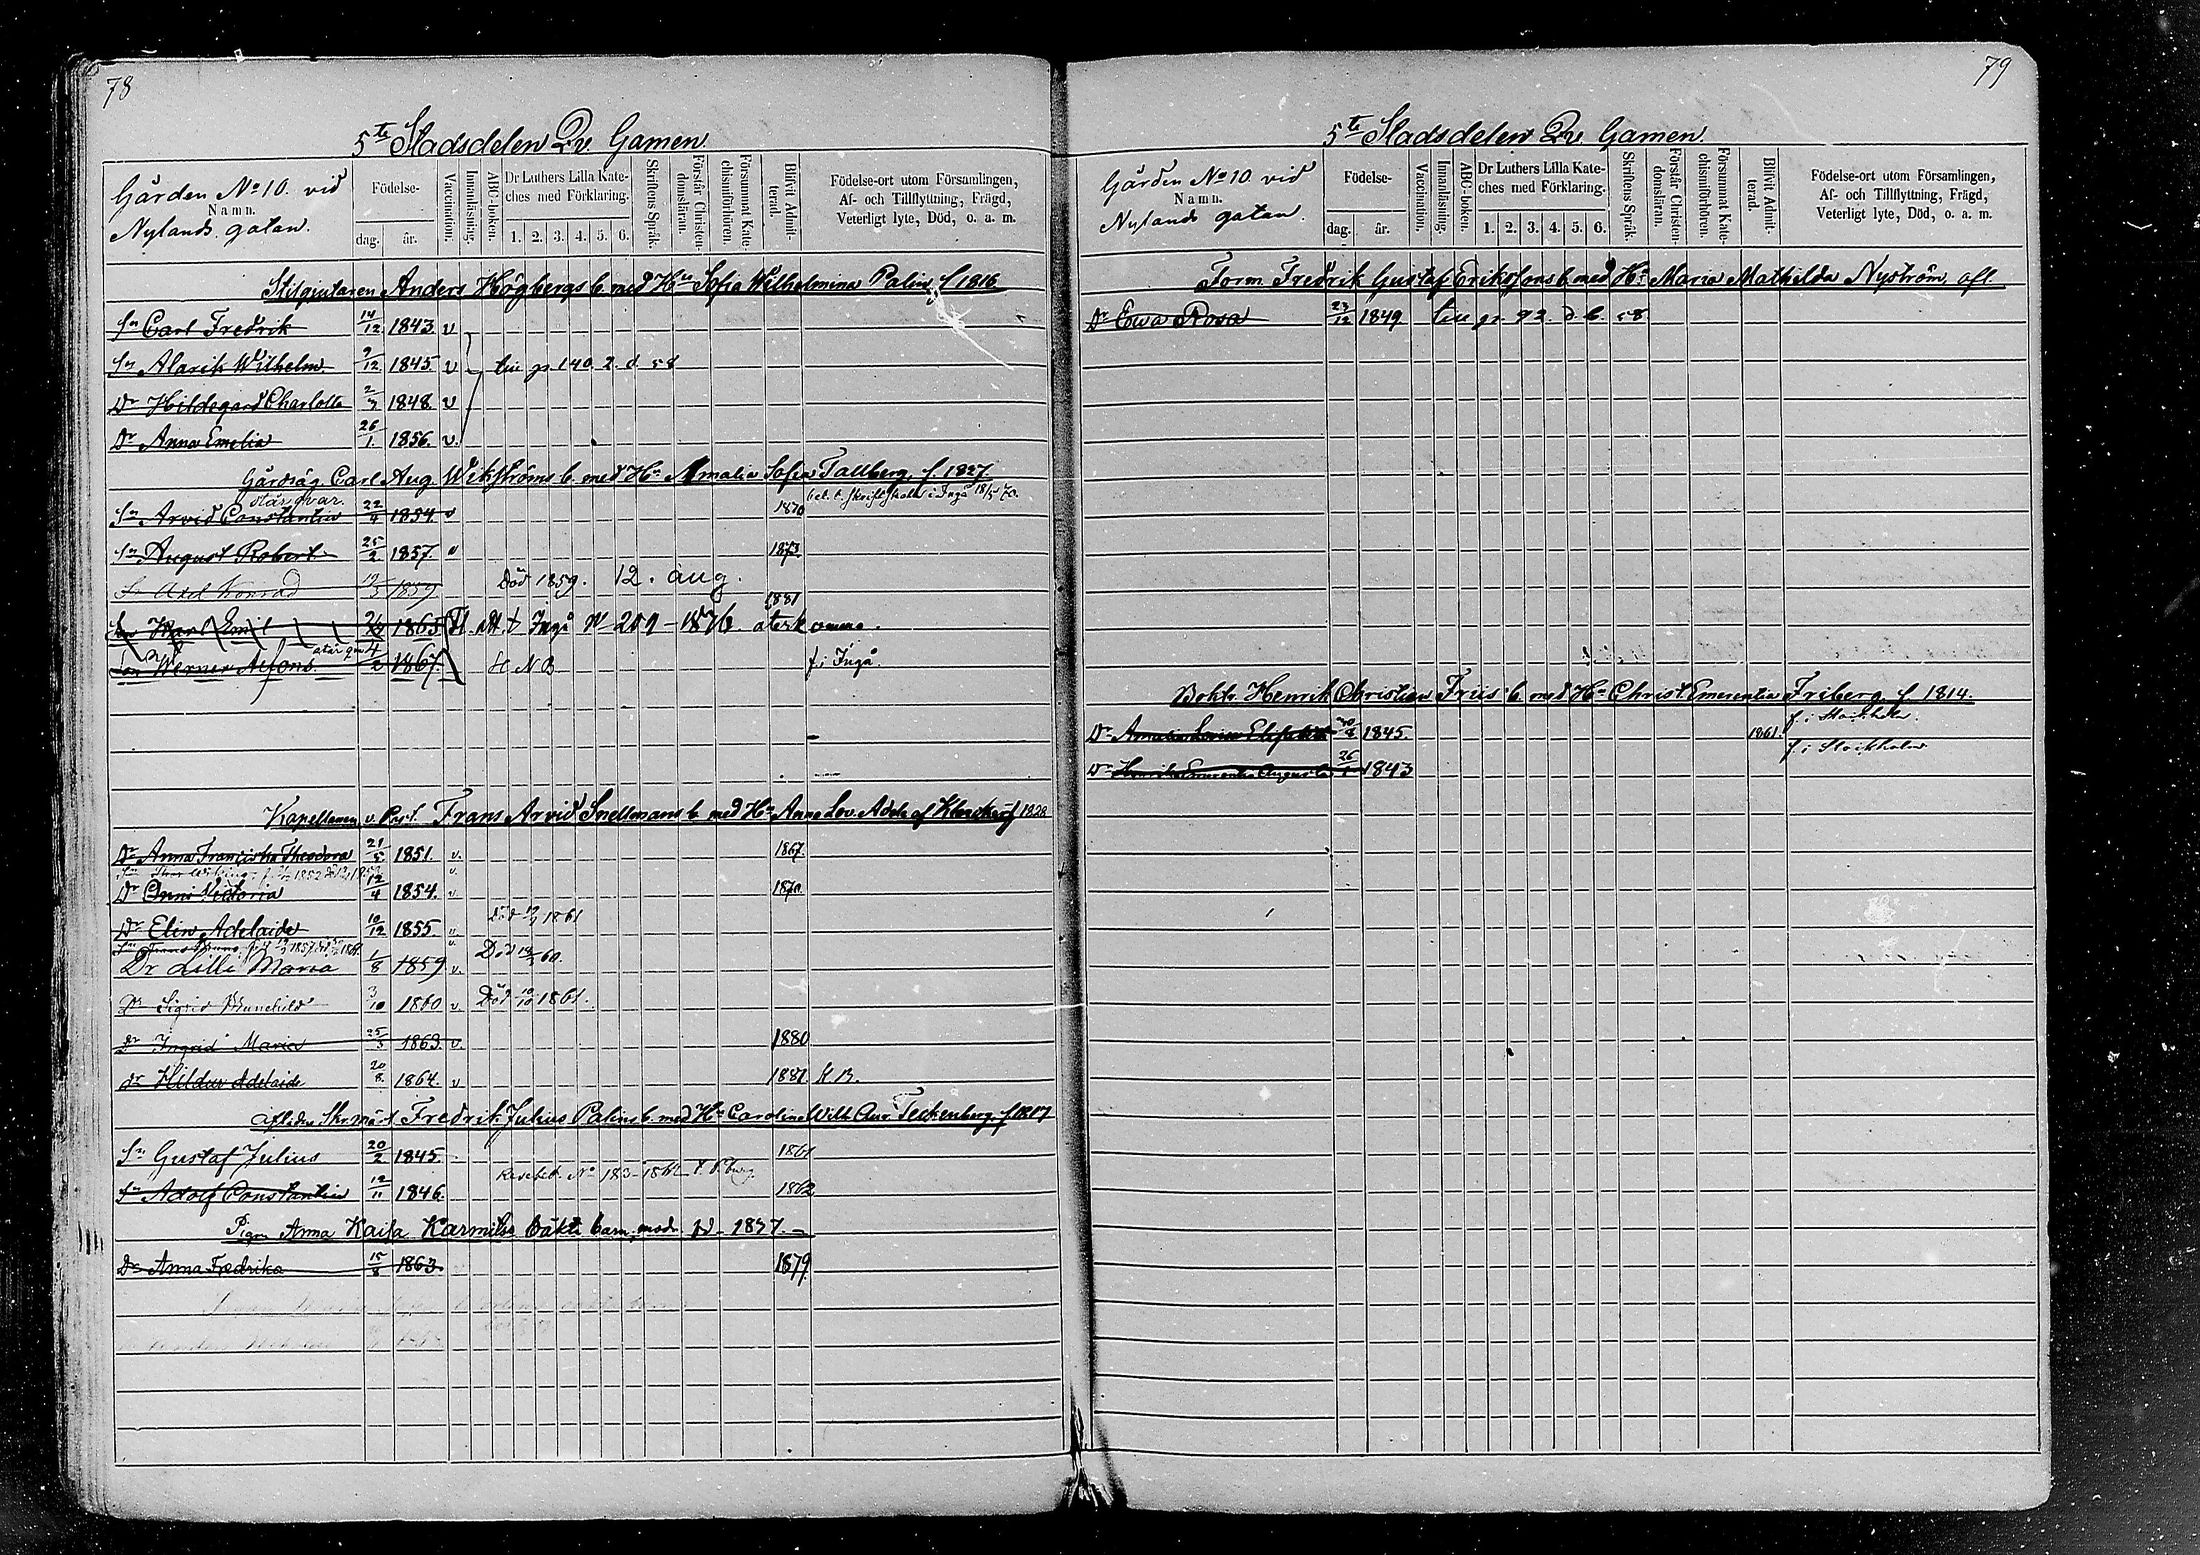 78
5te Stadsdelen Qv. Gamen.
Gården No 10. vid
Namn.
Nylands gatan.
Födelse-
dag. år.
Vaccination.
Innanläsning.
ABC-boken.
Dr Luthers Lilla Kate-
ches med Förklaring.
1. 2. 3. 4. 5. 6.
Skriftens Språk.
Förstår Christen-
domsläran.
Försummat Kate-
chismiförhören.
Blifvit Admit-
terad.
Födelse-ort utom Församlingen,
Af- och Tillflyttning, Frägd,
Veterligt lyte, Död, o. a. m.
Stilgjutaren Anders Högbergs b. med Hu Sofia Wilhelmina Palin f. 1816
Sn Carl Fredrik 14/12 1843 v
Sn Alarik Wilhelm 9/12 1845 v 140. 2. d. 58
Dr Hildegard Charlotta 2/7 1848. v
Dr Anna Emelia 26/1 1856. v.
Gårdsäg. Carl Aug. Wikströms b. med Hu Amalia Sofia Tallberg. f. 1827
står qvar.
Sn Arvid Constantin 22/4 1854 v 1870 i Ingå 18/5 70.
Sn August Robert 25/2 1857. v 1873
Sn Axel Konrad 1859 Död 1859. 12. aug.
1881
Son Karl Emil 1865 Ingå N 209 - 1876 återkomna.
står qvar
Son Werner Alfons. 4/2 1867. f. i Ingå.
Kapellanen v. Past. Frans Arvid Snellmans b. med Hu Anna Lov. Adele af Klercker f 1828
Dr Anna Franciska Theodora 21/5 1851. v. 1867.
Dr Onni Victoria 12/4 1854. v. 1870.
Dr Elin Adelaide 10/12 1855. v. Död 1861
Dr Lilli Maria 1/8 1859 v. Död 60.
Dr Sigrid Brunehild 3/10 1860 v Död 1861.
Dr Ingrid Maria 25/3 1863. v. 1880
dr Hildur Adelaide 20/8 1864. v 1881
Fredrik Julius Palins b. med Hu Carolina Wilh. Aur. Teckenberg. f. 1817
Sn Gustaf Julius 20/2 1845. 1861
No 183-1862
Sn Adolf Constantin 12/11 1846. 1862
Pigan Anna Kaisa Karmilas oäkta barn, mod. 1837.
Dr Anna Fredrika 15/8 1863. 1879.
79
5te Stadsdelen Qv. Gamen.
Gården No 10. vid
Namn.
Nylands gatan.
Födelse-
dag. år.
Vaccination.
Innanläsning.
ABC-boken.
Dr Luthers Lilla Kate-
ches med Förklaring.
1. 2. 3. 4. 5. 6.
Skriftens Språk.
Förstår Christen-
domsläran.
Försummat Kate-
chismiförhören.
Blifvit Admit-
terad.
Födelse-ort utom Församlingen,
Af- och Tillflyttning, Frägd,
Veterligt lyte, Död, o. a. m.
Form. Fredrik Gustaf Erikssons b. med Hu Maria Mathilda Nyström, afl.
Dr Ewa Rosa 23/12 1849 58
Bokh. Henrik Christian Friis b. med Hu Christ. Emerentia Friberg f. 1814.
f. i Stockholm.
Dr Amalia Lovisa Elisabeth 1845. 1861.
f. i Stockholm
Dr Henrika Emerentia Augusta 26/1 1843